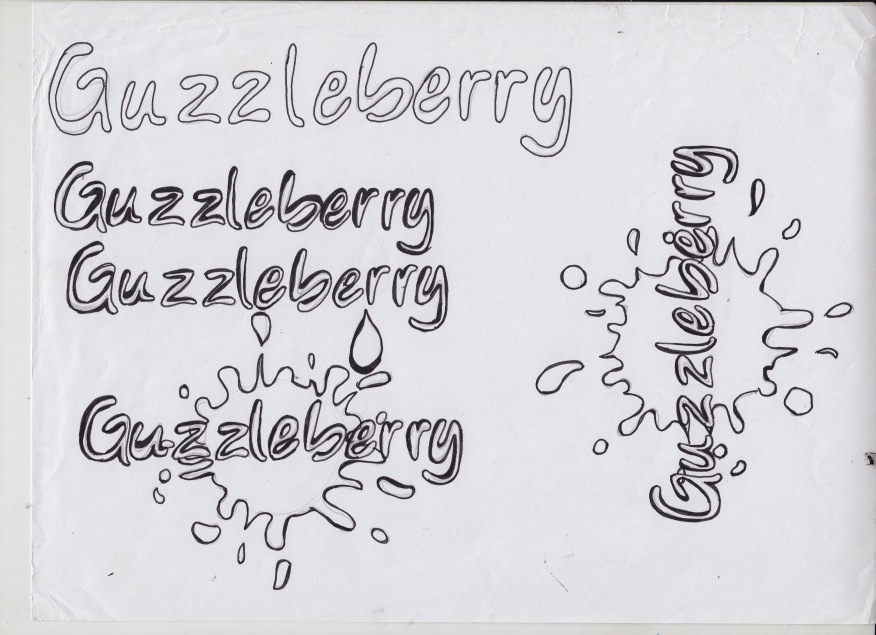 Guzzleberry
Guzzleberry
Guzzleberry
Guzzleberry
Guzzleberry